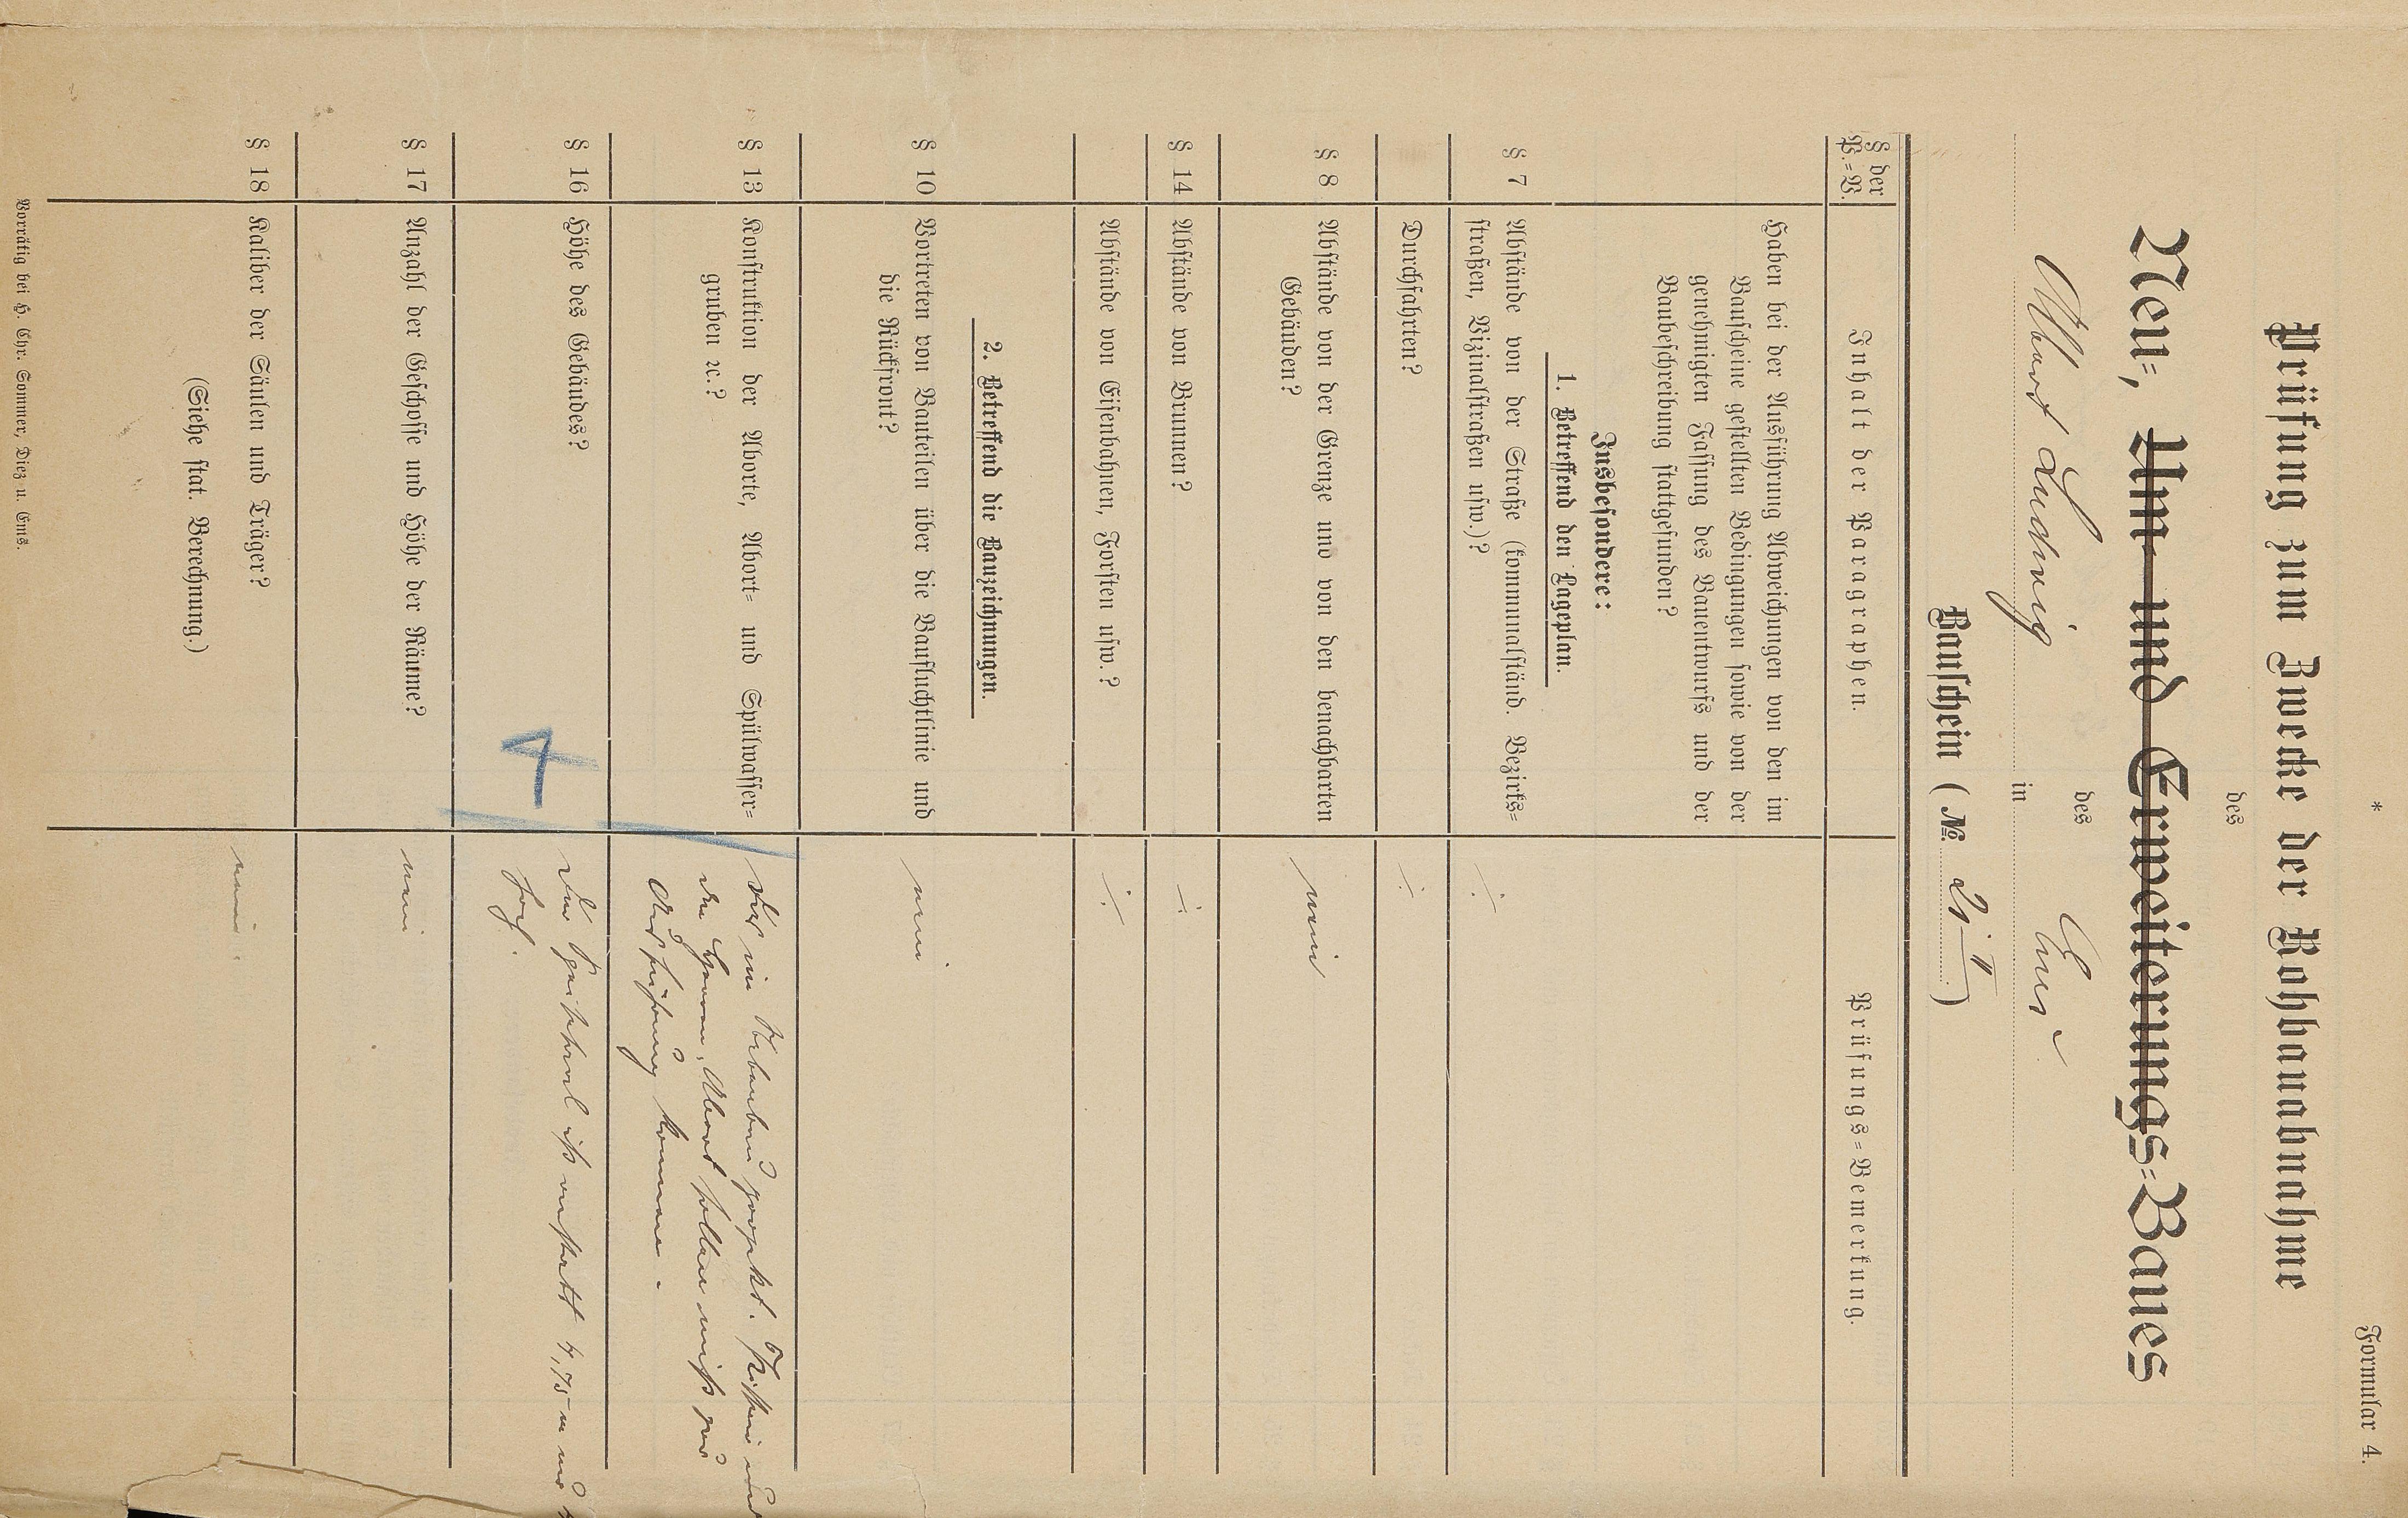 Formular 4.
*
Prüfung zum Zwecke der Rohbauabnahme
des
Neu=, Um- und Erweiterungs=Baues
des
Albert Ludwig in Ems
Bauschein (№ 21 II)
§ der P.=V.
Inhalt der Paragraphen.
Prüfungs=Bemerkung.
Haben bei der Ausführung Abweichungen von den im
Bauscheine gestellten Bedingungen sowie von der
genehmigten Fassung des Bauentwurfs und der
Baubeschreibung stattgefunden?
Insbesondere:
1. Betreffend den Lageplan.
§ 7 Abstände von der Straße (kommunalständ. Bezirks=
straßen, Vizinalstraßen usw.)? ÷
Durchfahrten? ÷
§ 8 Abstände von der Grenze und von den benachbarten
Gebäuden? nein
§ 14 Abstände von Brunnen? ÷
Abstände von Eisenbahnen, Forsten usw.? ÷
2. Betreffend die Bauzeichnungen.
§ 10 Vortreten von Bauteilen über die Baufluchtlinie und
die Rückfront? nein
§ 13 Konstruktion der Aborte, Abort= und Spülwasser=
gruben ec.?
Das im projekt.
Abort sollen nicht zur
Ausführung kommen.
§ 16 Höhe des Gebäudes?
4
ist anstatt 4,75 m nur
hoch.
§ 17 Anzahl der Geschosse und Höhe der Räume? nein
§ 18 Kaliber der Säulen und Träger? nein.
(Siehe stat. Berechnung.)
Vorrätig bei H. Chr. Sommer, Diez u. Ems.